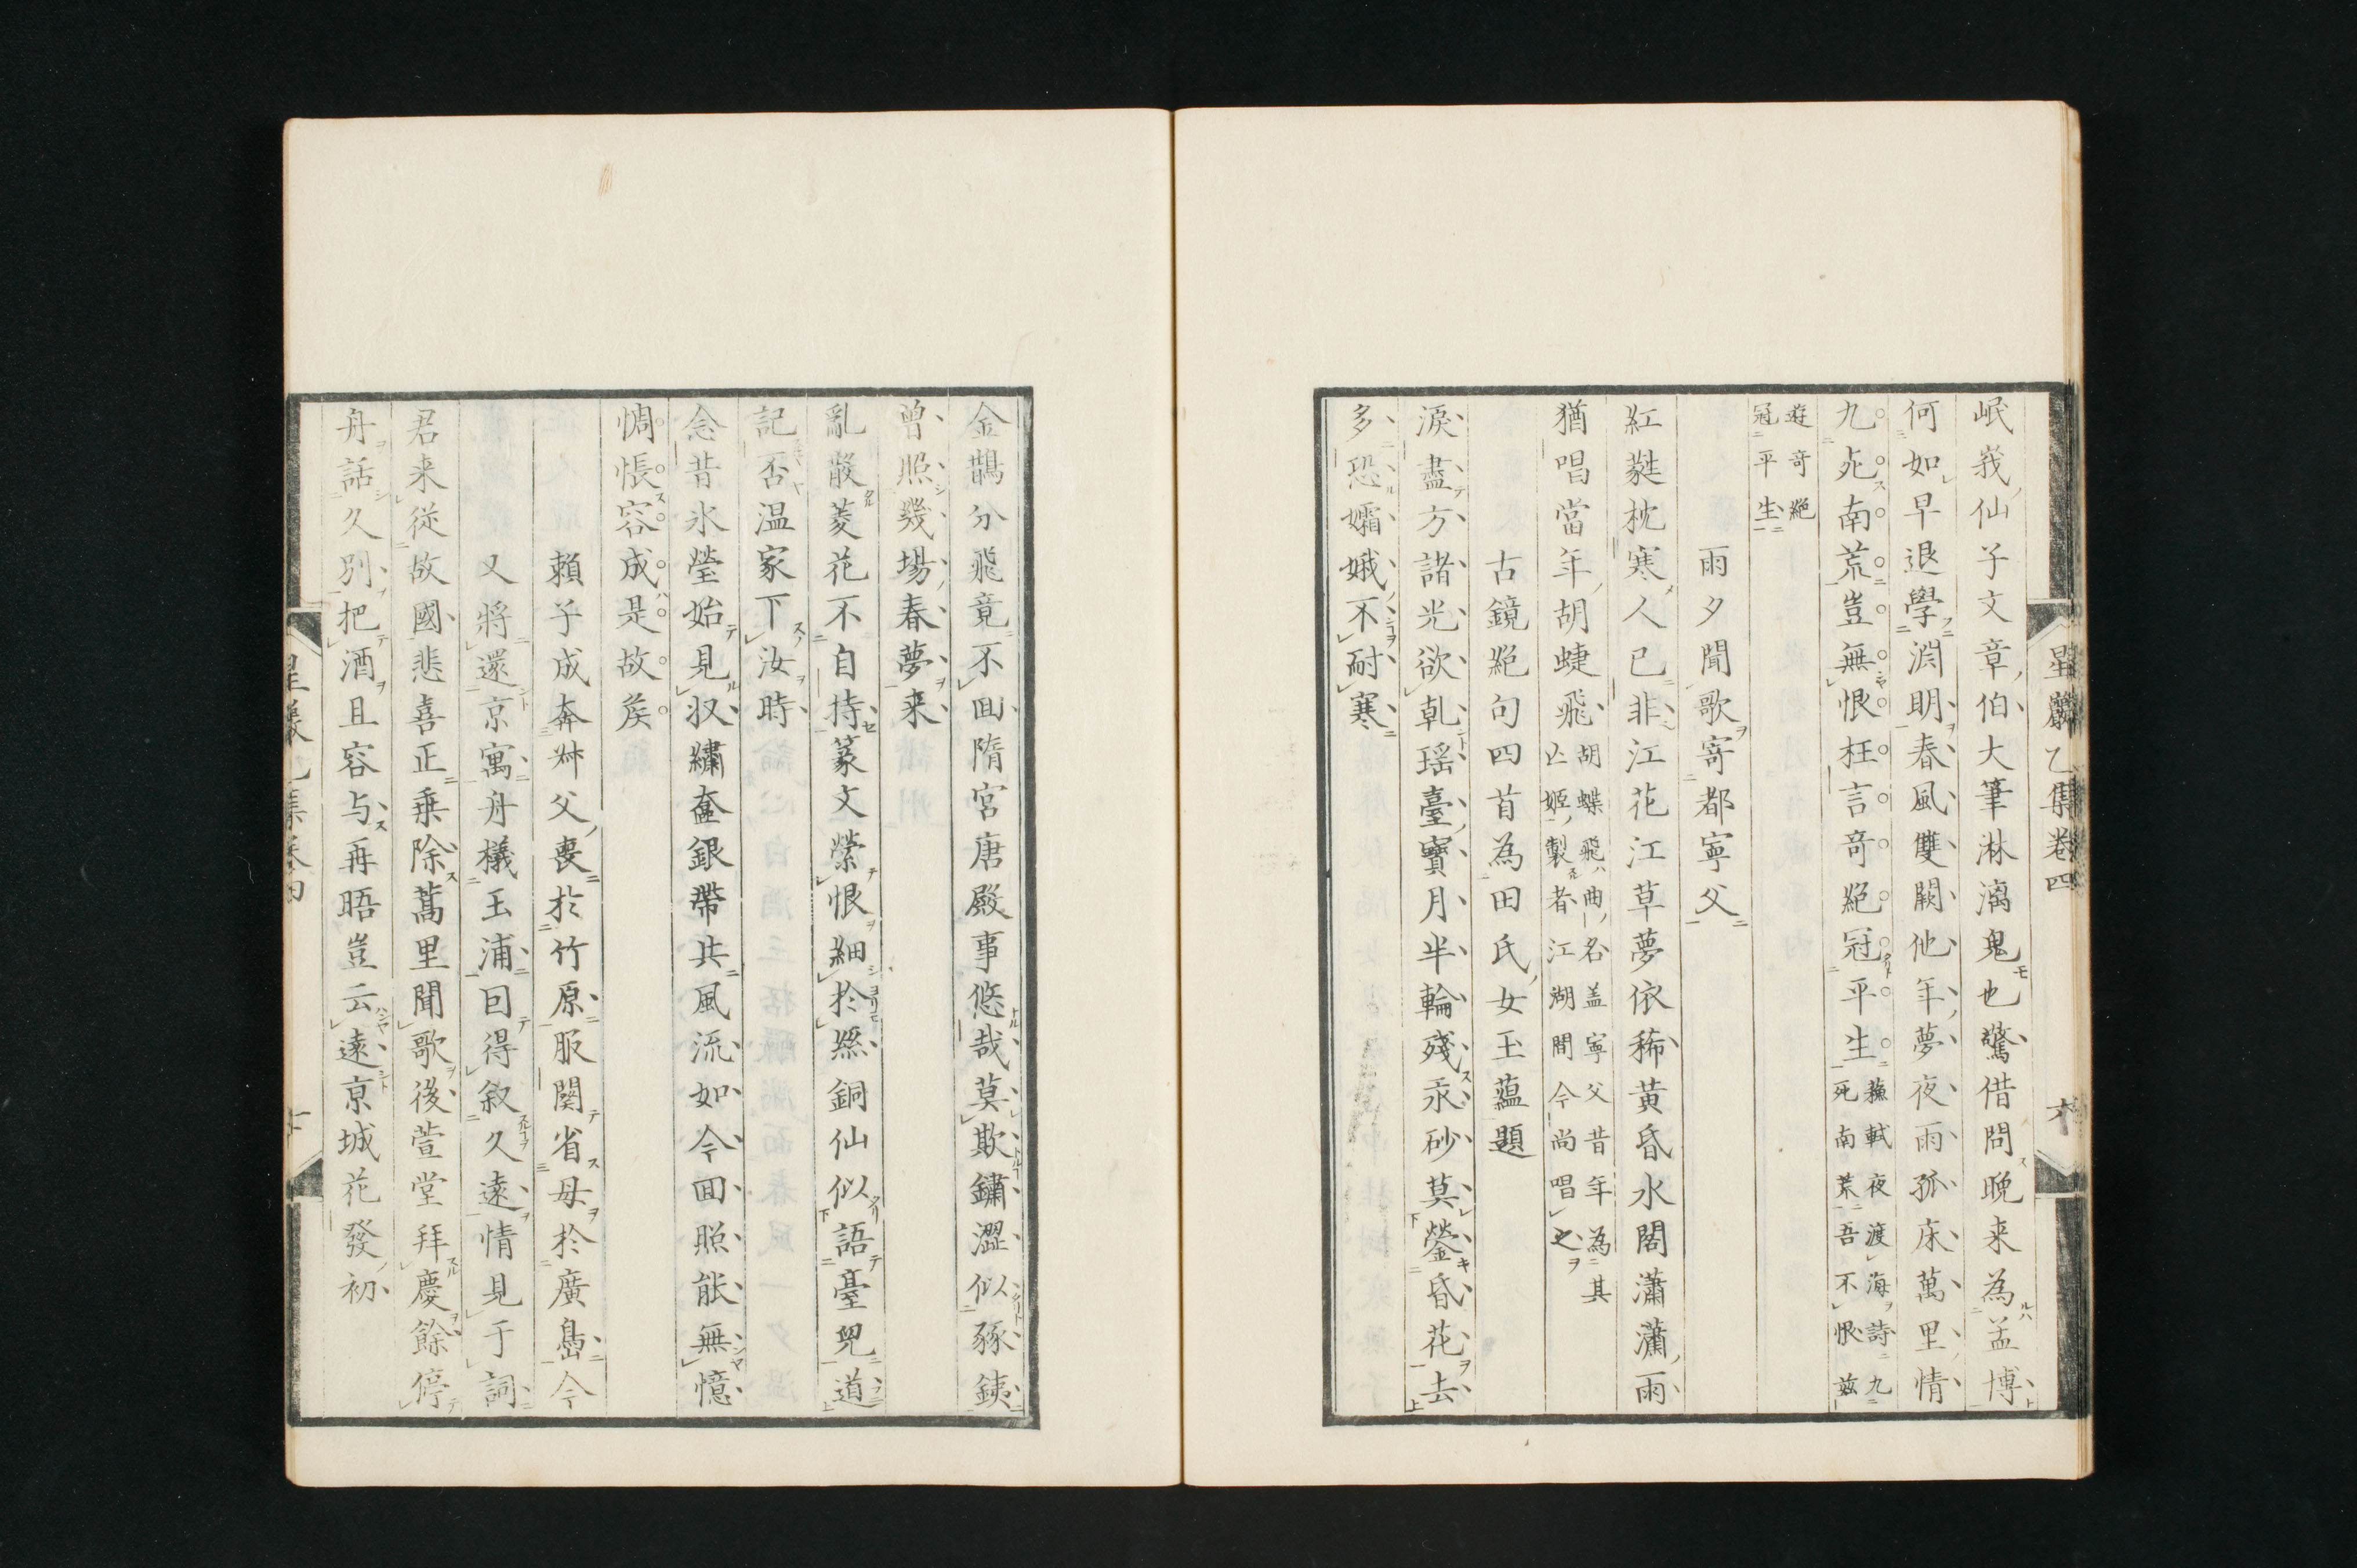 星巖乙集卷四
六
岷峩仙子文章伯大筆淋漓鬼也驚借問晚来為孟博
何如早退學淵明春風雙闕他年夢夜雨孤床萬里情
九死南荒豈無恨枉言竒絕冠平生蘓軾夜渡海詩九死南荒吾不恨玆
遊竒絕冠平生
雨夕聞歌寄都寧父
紅蕤枕寒人已非江花江草夢依稀黃昏水閣瀟瀟雨
猶唱當年胡蜨飛胡蝶飛曲名盖寧父昔年為其亾姬製者江湖間今尚唱之
古鏡絕句四首為田氏女玉蘊題
淚盡方諸光欲乹瑶臺寶月半輪殘汞砂莫鎣昏花去
多恐孀娥不耐寒
金鵲分飛竟不回隋宮唐殿事悠哉莫欺鏽澀似豩銕
曾照幾場春夢来
亂散菱花不自持篆文縈恨細於絲銅仙似語臺兕道
記否温家下汝時
念昔氷瑩始見収繡奩銀帶共風流如今回照能無憶
惆悵容成是故矦
賴子成奔舛父喪於竹原服闋省母於廣島今
又將還京寓舟檥玉浦囙得叙久遠情見于詞
君来從故國悲喜正乗除蒿里聞歌後萱堂拜慶餘停
舟話久別把酒且容与再晤豈云遠亰城花發初